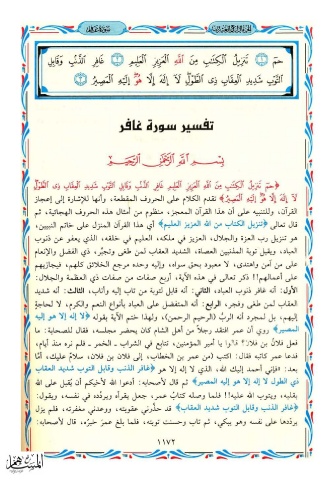 حمٓ تَنزِيلُ ٱلْكِتَٰبِ مِنَ ٱللَّهِ ٱلْعَزِيزِ ٱلْعَلِيمِ غَافِرِ ٱلذَّنۢبِ وَقَابِلِ
ٱلتَّوْبِ شَدِيدِ ٱلْعِقَابِ ذِى ٱلطَّوْلِ لَآ إِلَٰهَ إِلَّا هُوَ إِلَيْهِ ٱلْمَصِيرُ
تفسير سورة غافر
بِسْمِ اللَّهِ الرَّحْمَنِ الرَّحِيمِ
﴿حمٓ تَنزِيلُ ٱلْكِتَٰبِ مِنَ ٱللَّهِ ٱلْعَزِيزِ ٱلْعَلِيمِ غَافِرِ ٱلذَّنۢبِ وَقَابِلِ ٱلتَّوْبِ شَدِيدِ ٱلْعِقَابِ ذِى ٱلطَّوْلِ
لَآ إِلَٰهَ إِلَّا هُوَ إِلَيْهِ ٱلْمَصِيرُ﴾ تقدم الكلام على الحروف المقطعة، وأنها للإشارة إلى إعجاز
القرآن، وللتنبيه على أن هذا القرآن المعجز، منظوم من أمثال هذه الحروف الهجائية، ثم
قال تعالى ﴿تنزيل الكتاب من الله العزيز العليم﴾ أي هذا القرآن المنزل على خاتم النبيين،
هو تنزيل رب العزة والجلال، العزيز في ملكه، العليم في خلقه، الذي يعفو عن ذنوب
العباد، ويقبل توبة المذنبين العصاة، شديد العقاب لمن طغى وتجبر، ذي الفضل والإنعام
على من آمن واهتدى، لا معبود بحق سواه، وإليه وحده مرجع الخلائق كلهم، فيجازيهم
على أعمالهم!! ذكر تعالى في هذه الآية، أربع صفات من صفات ذي العظمة والجلال:
الأول: أنه غافر ذنوب العباد، الثاني: أنه قابل لتوبة من تاب إليه وأناب، الثالث: أنه شديد
العقاب لمن طغى وفجر، الرابع: أنه المتفضل على العباد بأنواع النعم والكرم، لا لحاجة
إليهم، بل لمجرد أنه البر (الرحيم الرحمن)، ولهذا ختم الآية بقوله ﴿لا إله إلا هو إليه
المصير﴾ روي أن عمر افتقد رجلاً من أهل الشام كان يحضر مجلسه، فقال للصحابة: ما
فعل فلان بن فلان؟ قالوا يا أمير المؤمنين، تتابع في الشراب - الخمر - فلم نره منذ أيام،
فدعا عمر كاتبه فقال: اكتب (من عمر بن الخطاب، إلى فلان بن فلان، سلام عليك، أما
بعد: فإني أحمد إليك الله، الذي لا إله إلا هو ﴿غافر الذنب وقابل التوب شديد العقاب
ذي الطول لا إله إلا هو إليه المصير﴾ ثم قال لأصحابه: ادعوا الله لأخيكم أن يُقبل على الله
بقلبه، ويتوب الله عليه!! فلما وصله كتاب عمر، جعل يقرأه ويردده في نفسه، ويقول:
﴿غافر الذنب وقابل التوب شديد العقاب﴾ قد حذرني عقوبته، ووعدني مغفرته، فلم يزل
يرددها على نفسه وهو يبكي، ثم تاب وحسنت توبته، فلما بلغ عمر خبره، قال لأصحابه:
١١٧٢